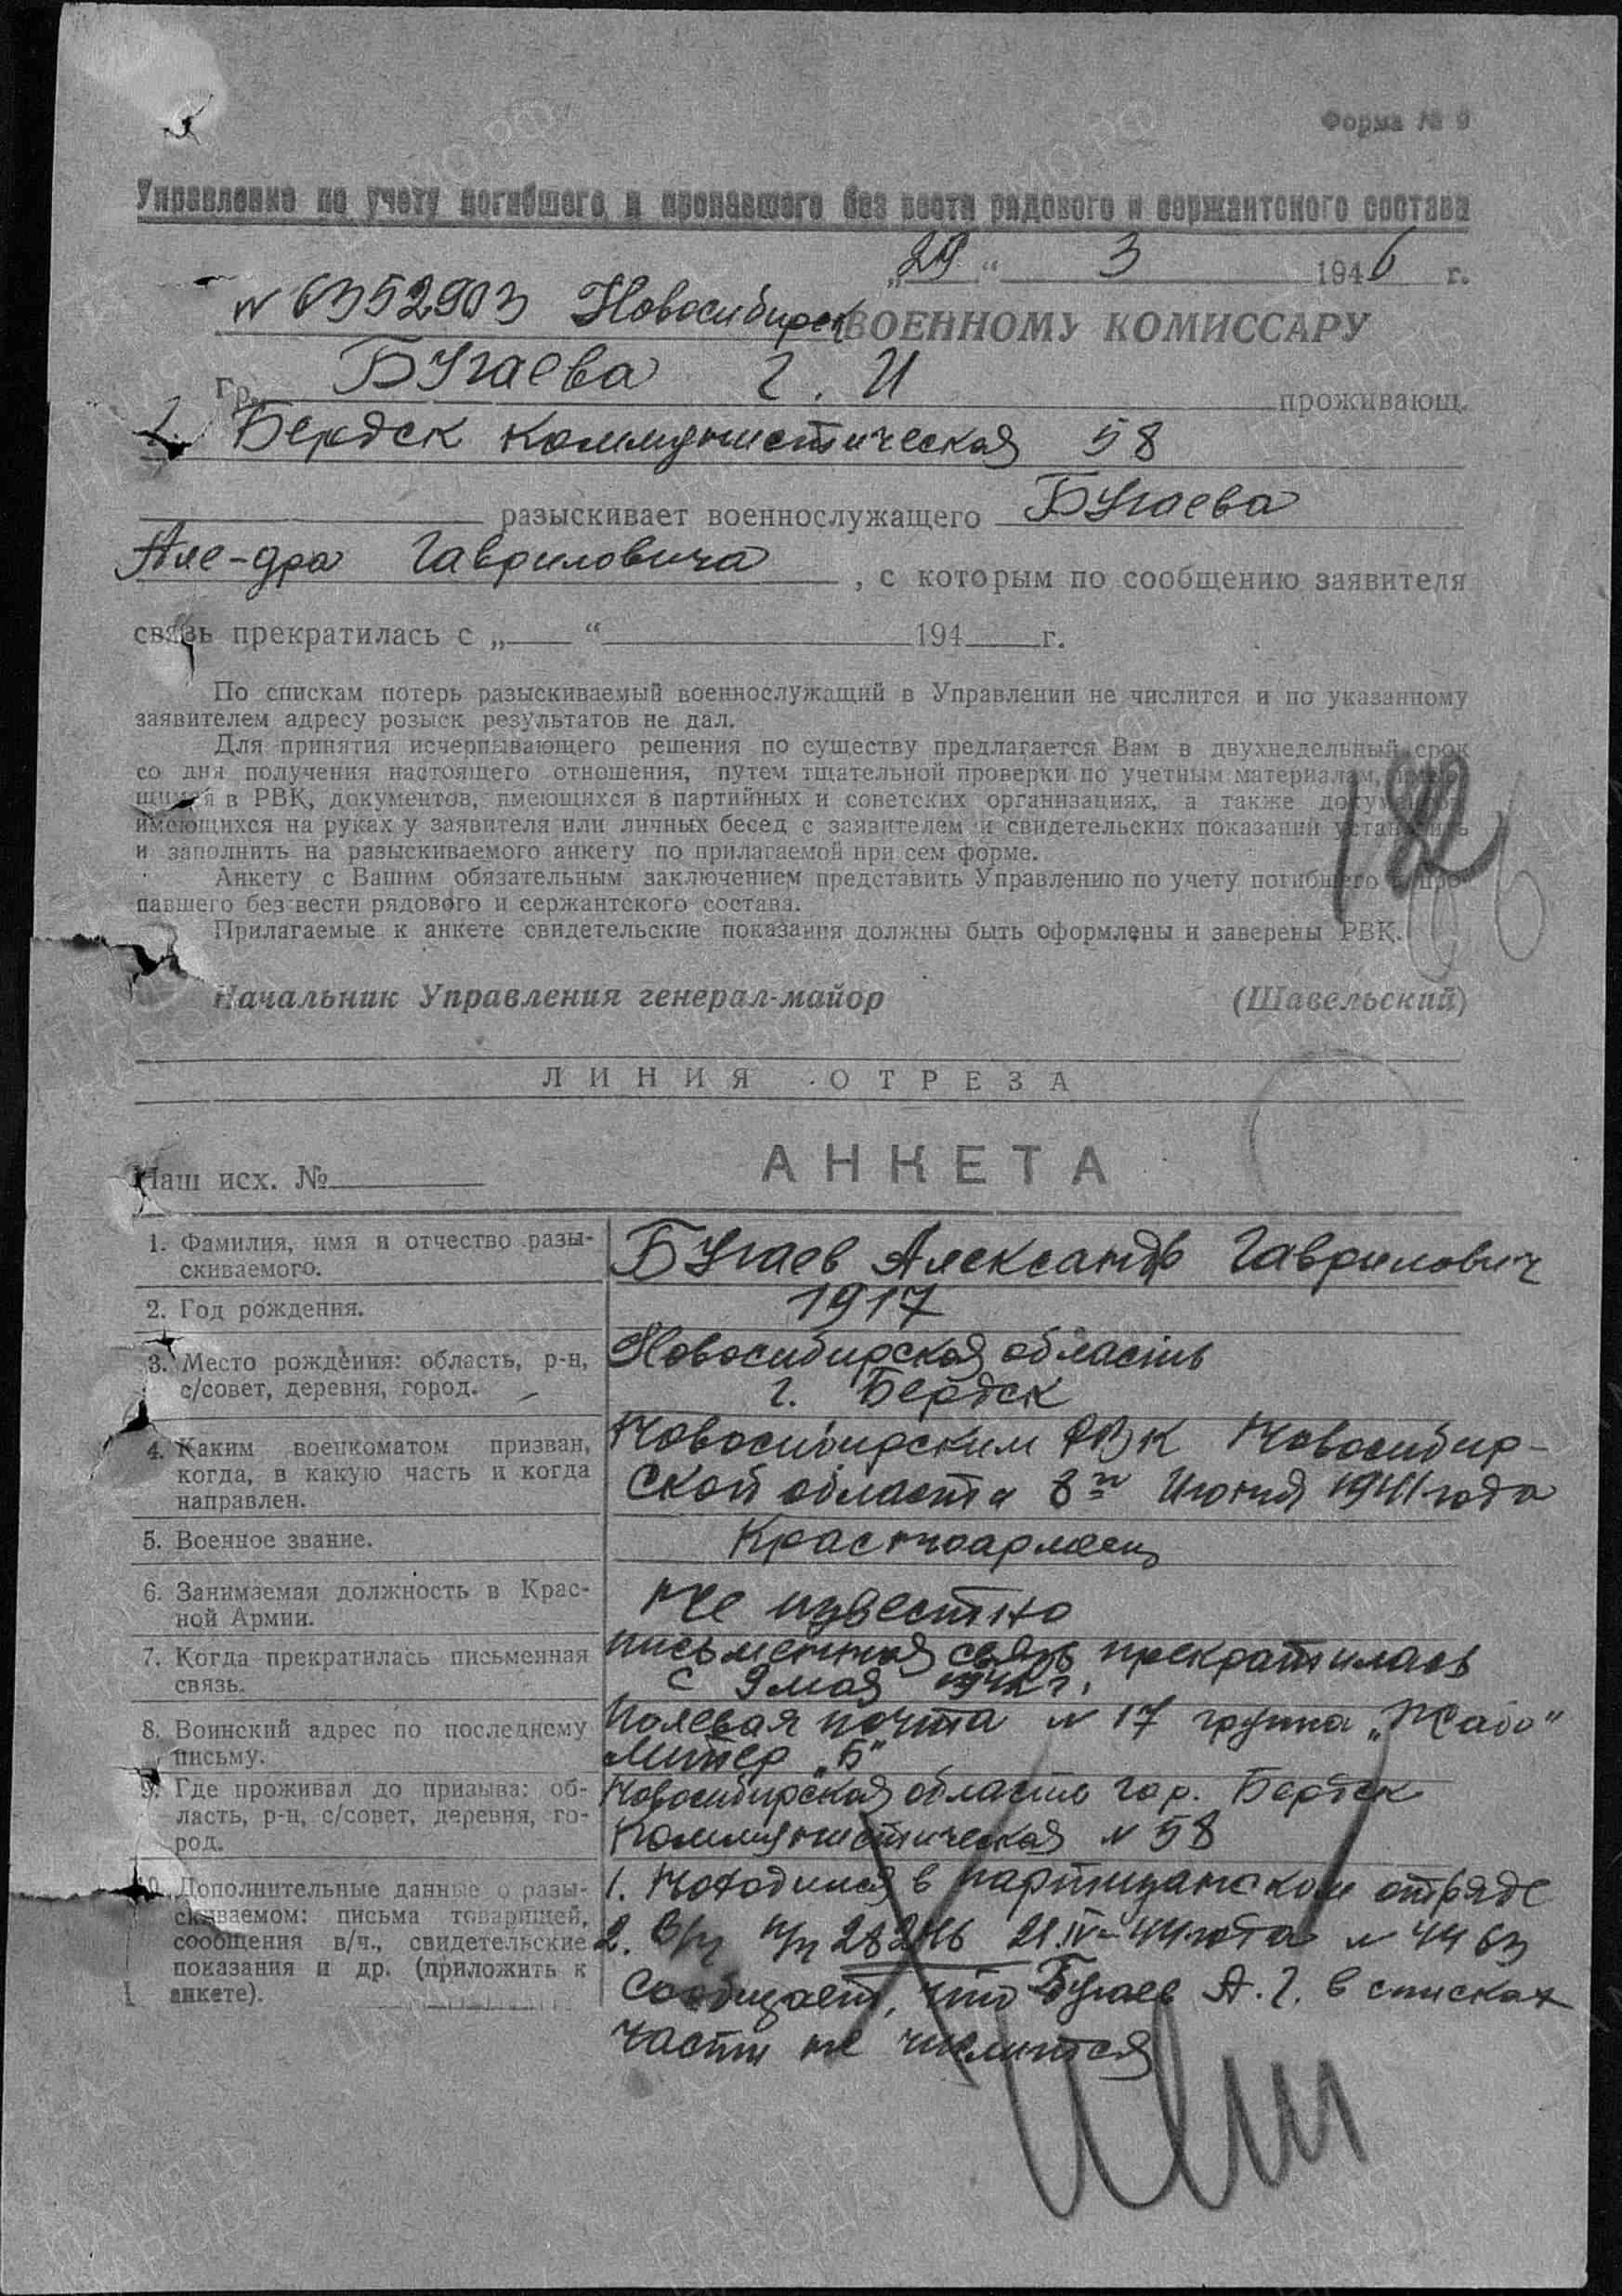 Форма № 9
Управление по учету погибшего и пропавшего без вести рядового и сержантского состава
„29“ 3 1946 г.
N 6352903 Новосибирск ВОЕННОМУ КОМИССАРУ
Гр. Бугаева Г. И проживающ.
г. Бердск Коммунистическая 58
разыскивает военнослужащего Бугаева
Але-дра Гавриловича, с которым по сообщению заявителя
связь прекратилась с „ “ 194 г.
По спискам потерь разыскиваемый военнослужащий в Управлении не числится и по указанному
заявителем адресу розыск результатов не дал.
Для принятия исчерпывающего решения по существу предлагается Вам в двухнедельный срок
со дня получения настоящего отношения, путем тщательной проверки по учетным материалам, имею-
щимся в РВК, документов, имеющихся в партийных и советских организациях, а также документов,
имеющихся на руках у заявителя или личных бесед с заявителем и свидетельских показаний установить
и заполнить на разыскиваемого анкету по прилагаемой при сем форме.
Анкету с Вашим обязательным заключением представить Управлению по учету погибшего и про-
павшего без вести рядового и сержантского состава.
Прилагаемые к анкете свидетельские показания должны быть оформлены и заверены РВК.
182
Начальник Управления генерал-майор (Шавельский)
ЛИНИЯ ОТРЕЗА
АНКЕТА
Наш исх. №
1. Фамилия, имя и отчество разы-
скиваемого.
Бугаев Александр Гаврилович
2. Год рождения.
1917
3. Место рождения: область, р-н,
с/совет, деревня, город.
Новосибирская область
г. Бердск
4. Каким военкоматом призван,
когда, в какую часть и когда
направлен.
Новосибирским РВК Новосибир-
ской области 8го Июня 1941 года
5. Военное звание.
Красноармеец
6. Занимаемая должность в Крас-
ной Армии.
Не известно
7. Когда прекратилась письменная
связь.
письменная связь прекратилась
с 9 мая 1942 г.
8. Воинский адрес по последнему
письму.
Полевая почта N 17 группа
Литер „Б“
9. Где проживал до призыва: об-
ласть, р-н, с/совет, деревня, го-
род.
Новосибирская область гор. Бердск
Коммунистическая N 58
10. Дополнительные данные о разы-
скиваемом: письма товарищей,
сообщения в/ч., свидетельские
показания и др. (приложить к
анкете).
1. Находился в партизанском отряде
2. В/ч п/п 28246 21.IV-44 года N 4463
Сообщает, что Бугаев А. Г. в списках
части не числится